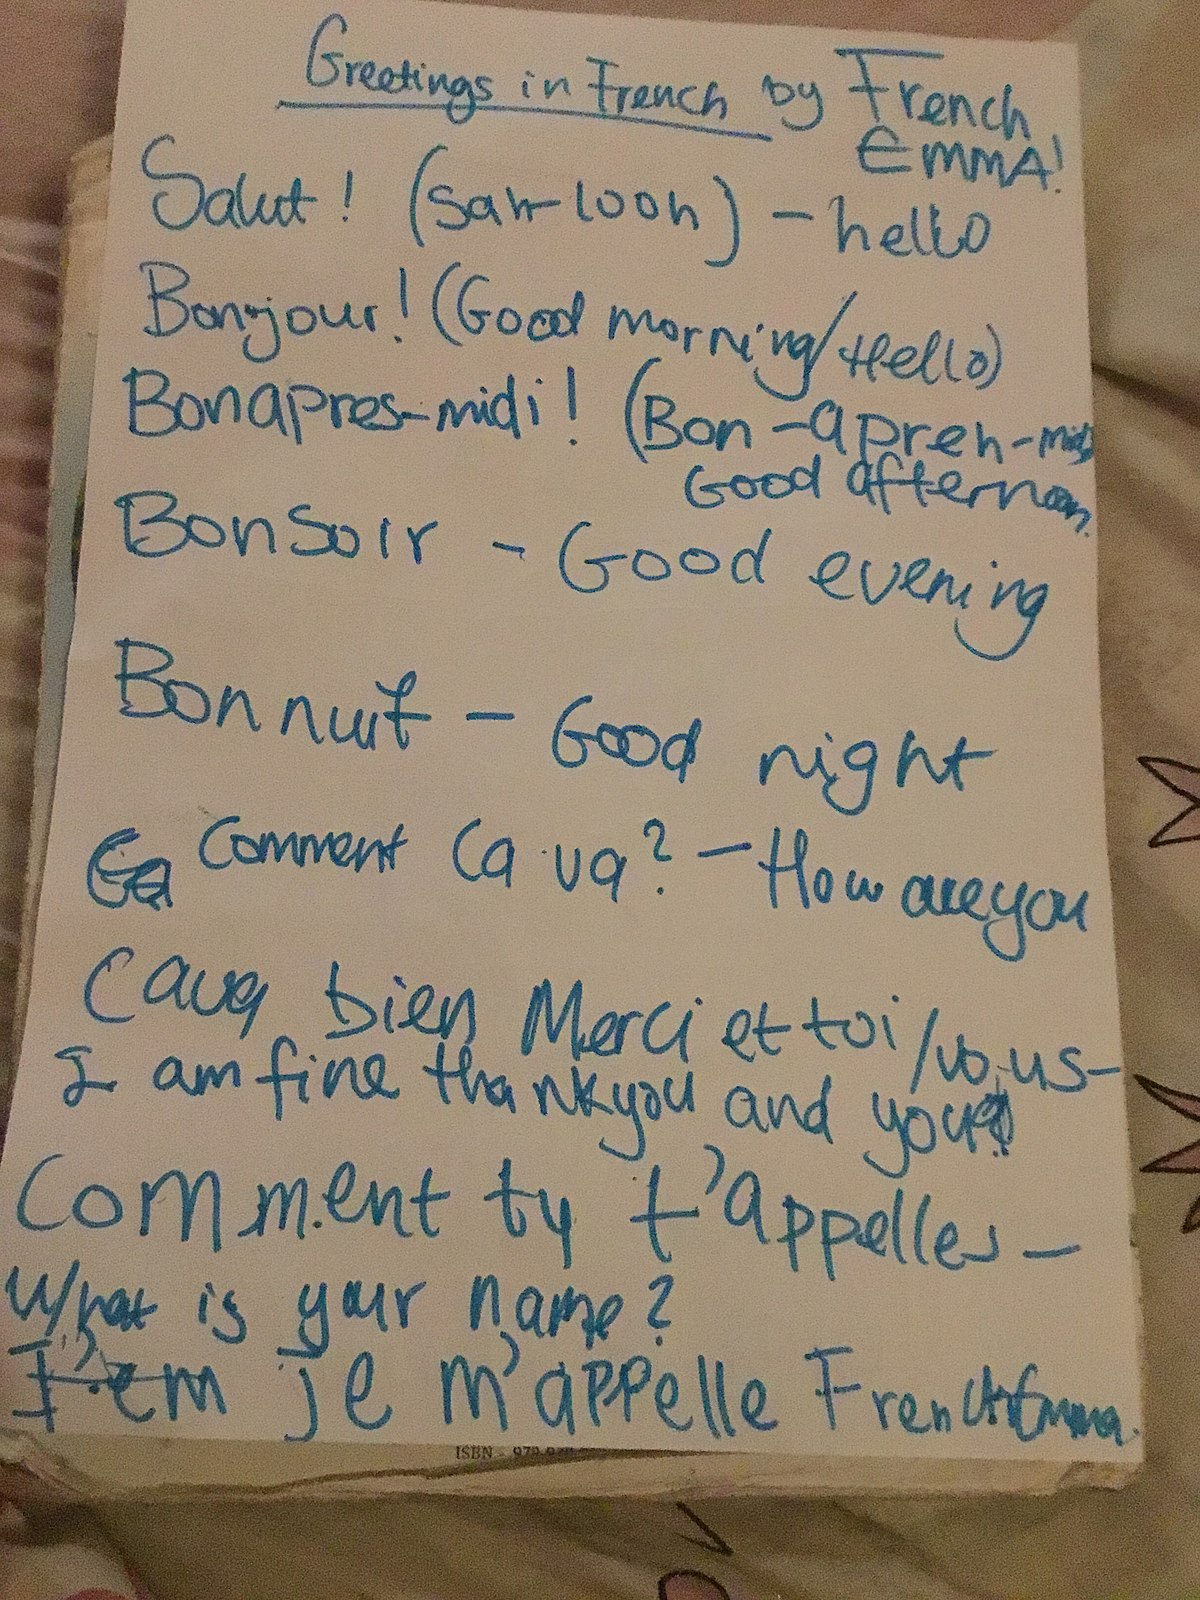 Greetings in French by French
EMMA!
Salut! (Sah-looh) - hello
Bonjour! (Good morning/Hello)
Bon apres-midi! (Bon-apreh-midi
Good afternoon.
Bonsoir - Good evening
Bonnuit - Good night
Comment Ca va? - How are you
Cava bien Merci et toi/vous-
I am fine thank you and you
Comment ty t'appelles -
What is your name?
je m'appelle French Emma.
ISBN - 979-978